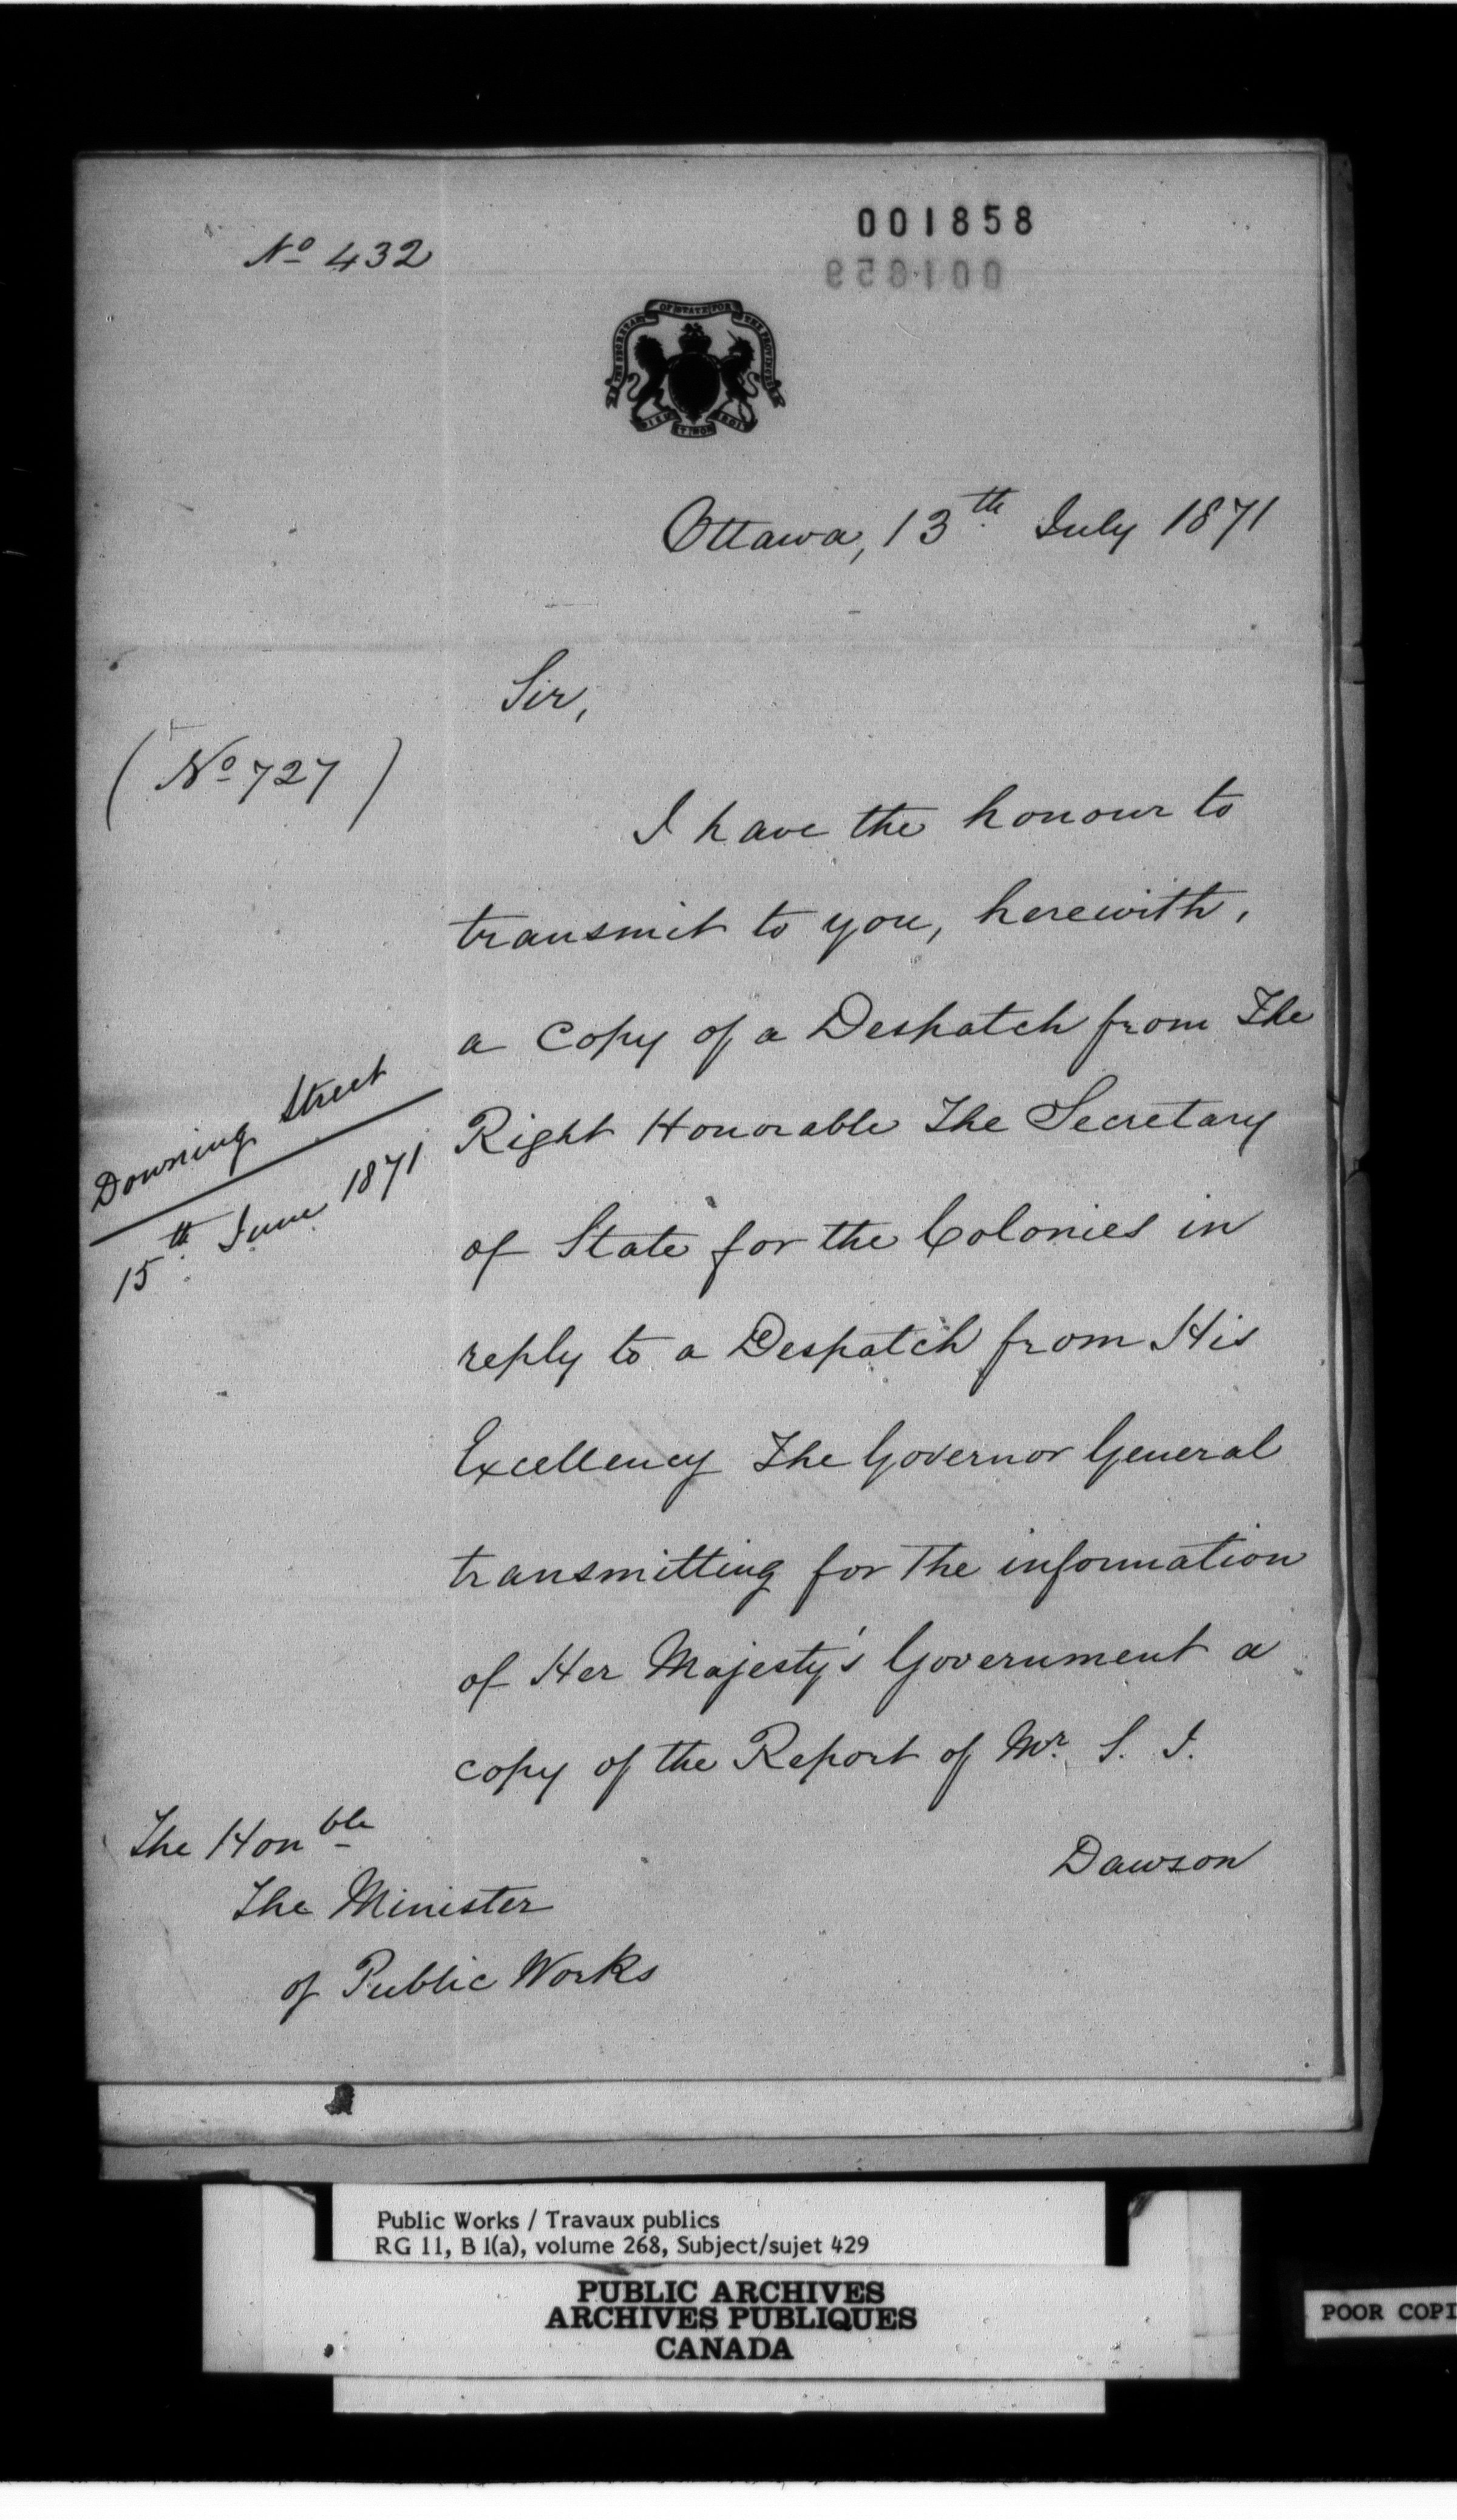 001858
No 432
THE SECRETARY OF STATE FOR THE PROVINCES
DIEU ET MON DROIT
Ottawa, 13th July 1871
Sir,
(No 727)
I have the honour to
transmit to you, herewith,
a Copy of a Despatch from The
Right Honorable The Secretary
Downing Street
15th June 1871
of State for the Colonies in
reply to a Despatch from His
Excellency The Governor General
transmitting for the information
of Her Majesty's Government a
copy of the Report of Mr. S. J.
Dawson
The Honble
The Minister
of Public Works
Public Works / Travaux publics
RG 11, B 1(a), volume 268, Subject/sujet 429
PUBLIC ARCHIVES
ARCHIVES PUBLIQUES
CANADA
POOR COPI